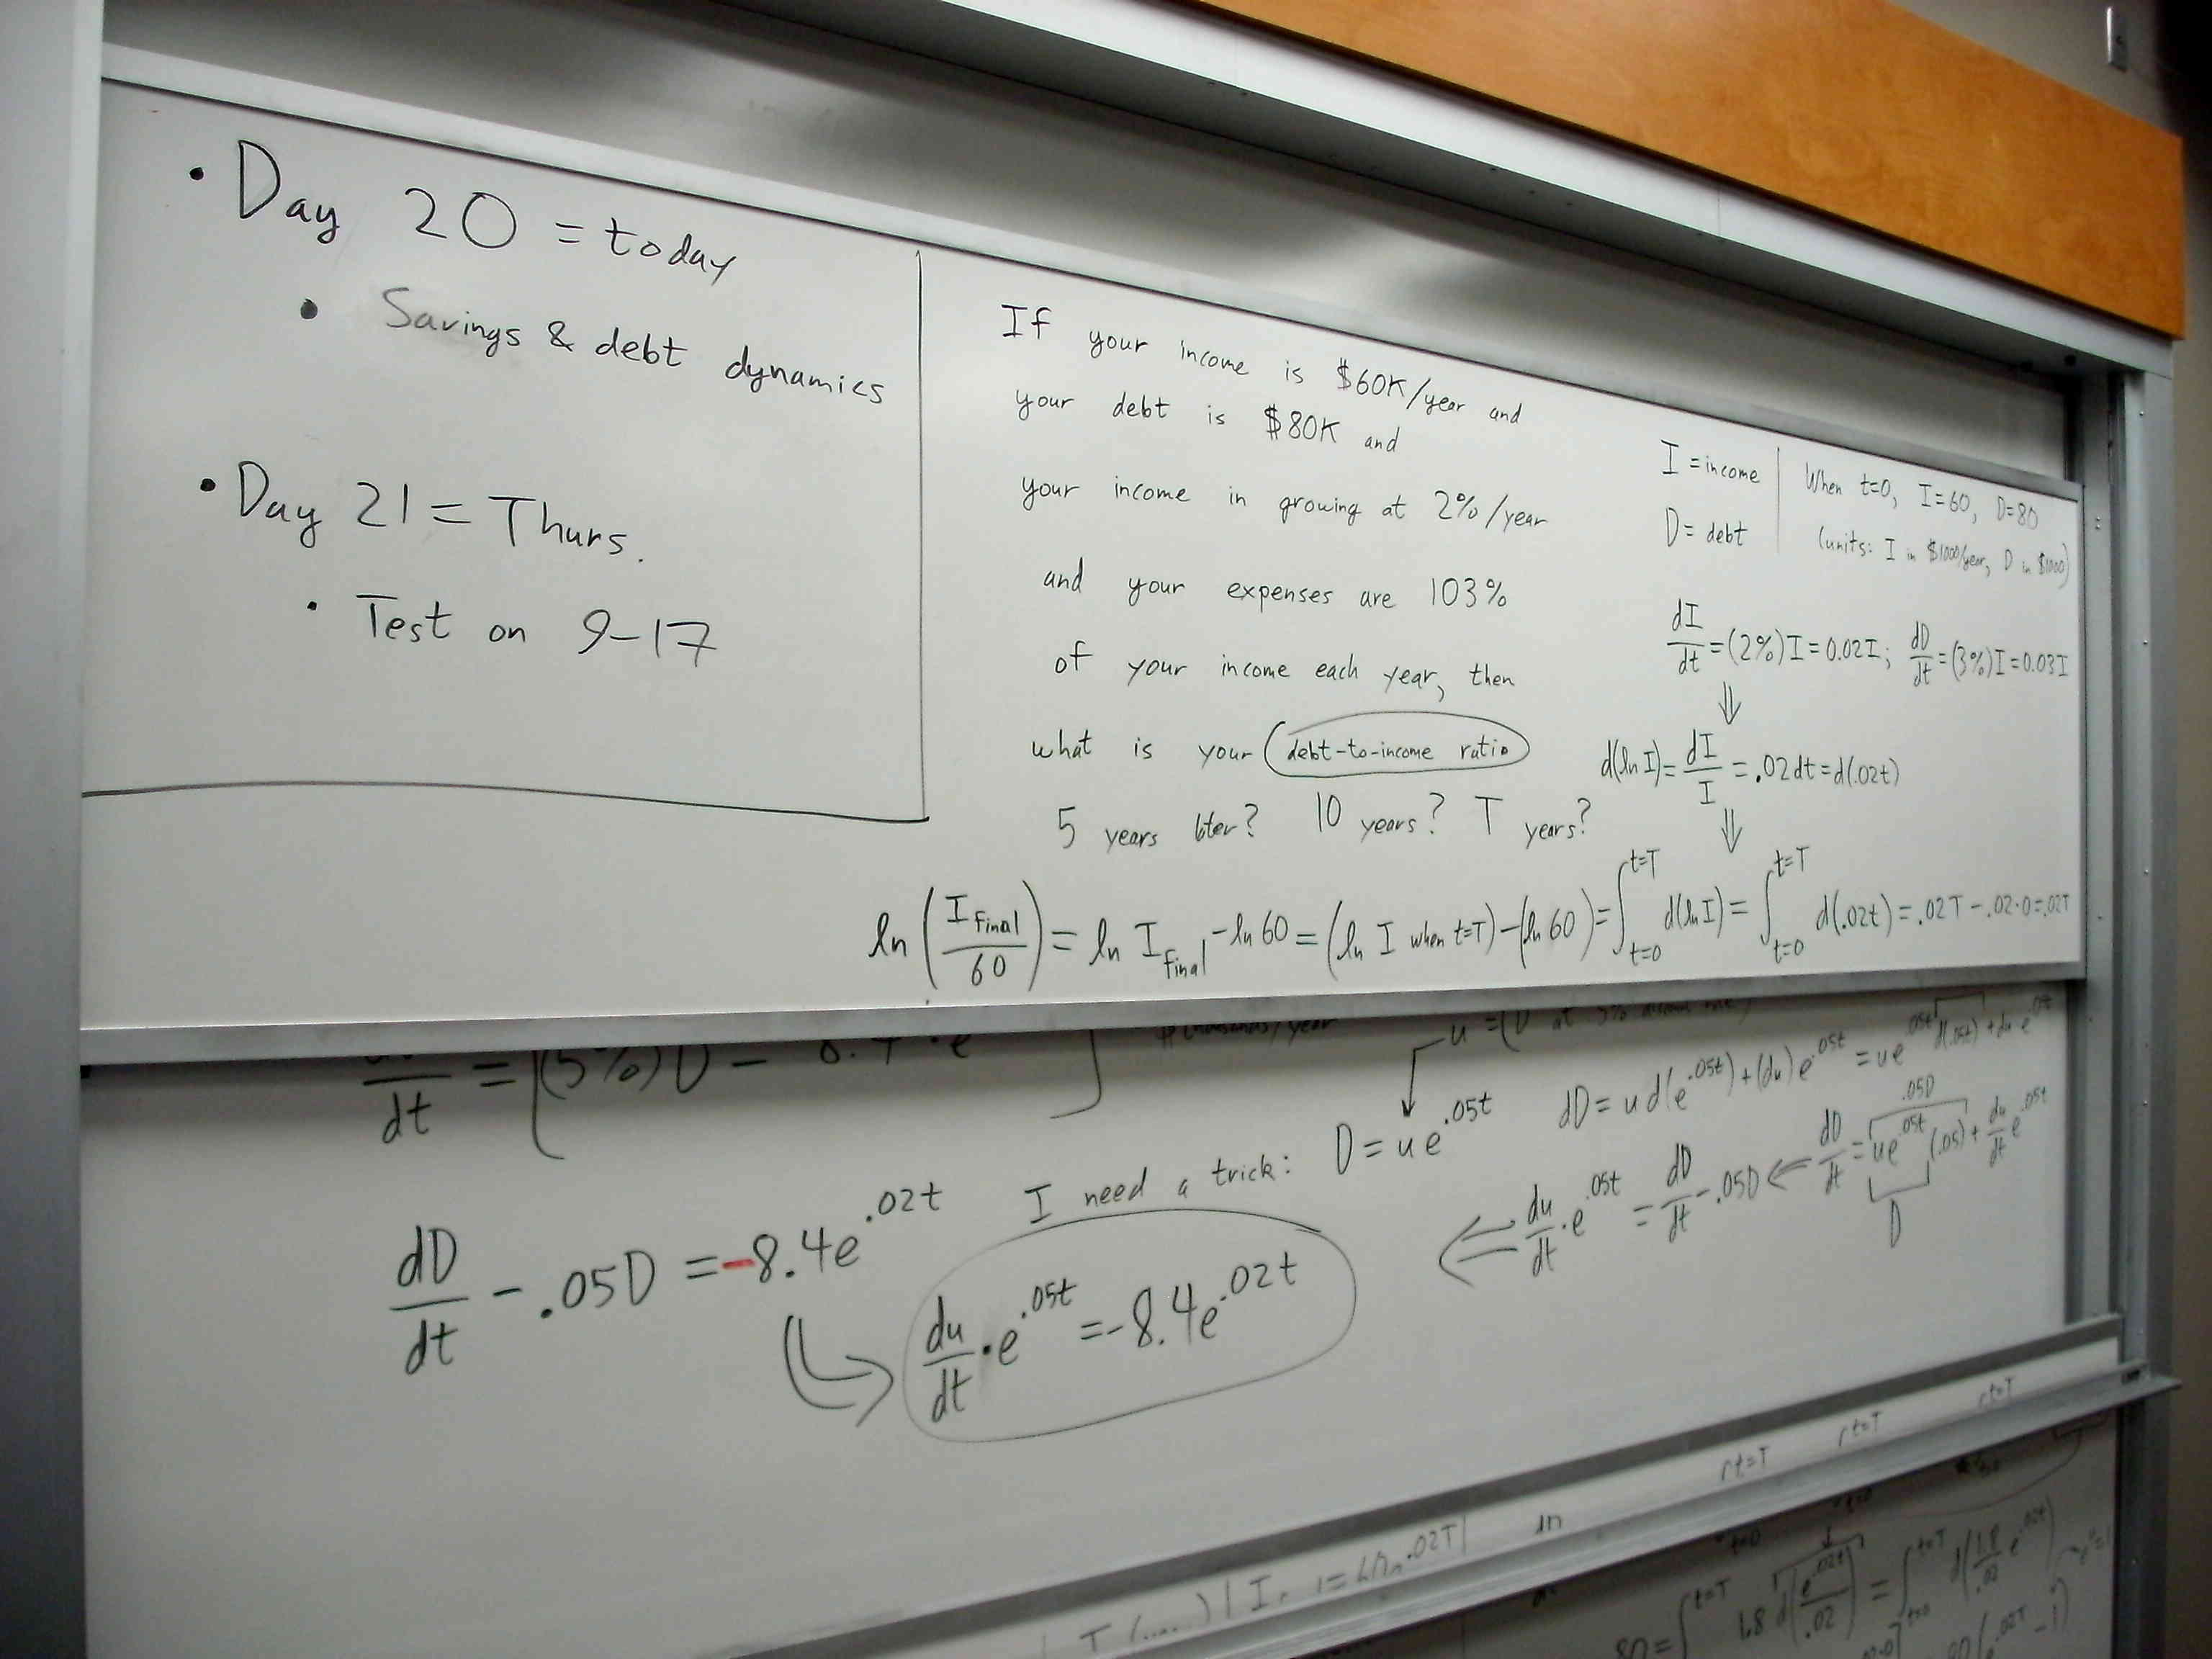 • Day 20 = today
• Savings & debt dynamics
• Day 21 = Thurs.
• Test on 9-17
If your income is $60K/year and
your debt is $80K and
your income in growing at 2%/year
and your expenses are 103%
of your income each year, then
what is your debt-to-income ratio
5 years later? 10 years? T years?
I = income
D = debt
When t=0, I=60, D=80
(units: I in $1000/year, D in $1000)
dI/dt = (2%)I = 0.02I; dD/dt = (3%)I = 0.03I
⇓
d(ln I) = dI/I = .02dt = d(.02t)
⇓
ln(I_final/60) = ln I_final - ln 60 = (ln I when t=T) - (ln 60) = ∫_{t=0}^{t=T} d(ln I) = ∫_{t=0}^{t=T} d(.02t) = .02T - .02·0 = .02T
dt = (5%)D -
$thousands/year
D = ue^{.05t}
dD = u d(e^{.05t}) + (du)e^{.05t} = ue^{.05t} d(.05t) + du e^{.05t}
.05D
dD/dt = ue^{.05t}(.05) + du/dt e^{.05t}
D
⇐ du/dt · e^{.05t} = dD/dt - .05D ⇐
I need a trick:
dD/dt - .05D = -8.4e^{.02t}
du/dt · e^{.05t} = -8.4e^{.02t}
t=T t=T t=T
80 = ∫^{t=T} 1.8 d(e^{.02t}/.02) = ∫_{t=0}^{t=T} d(1.8/.02 e^{.02t})